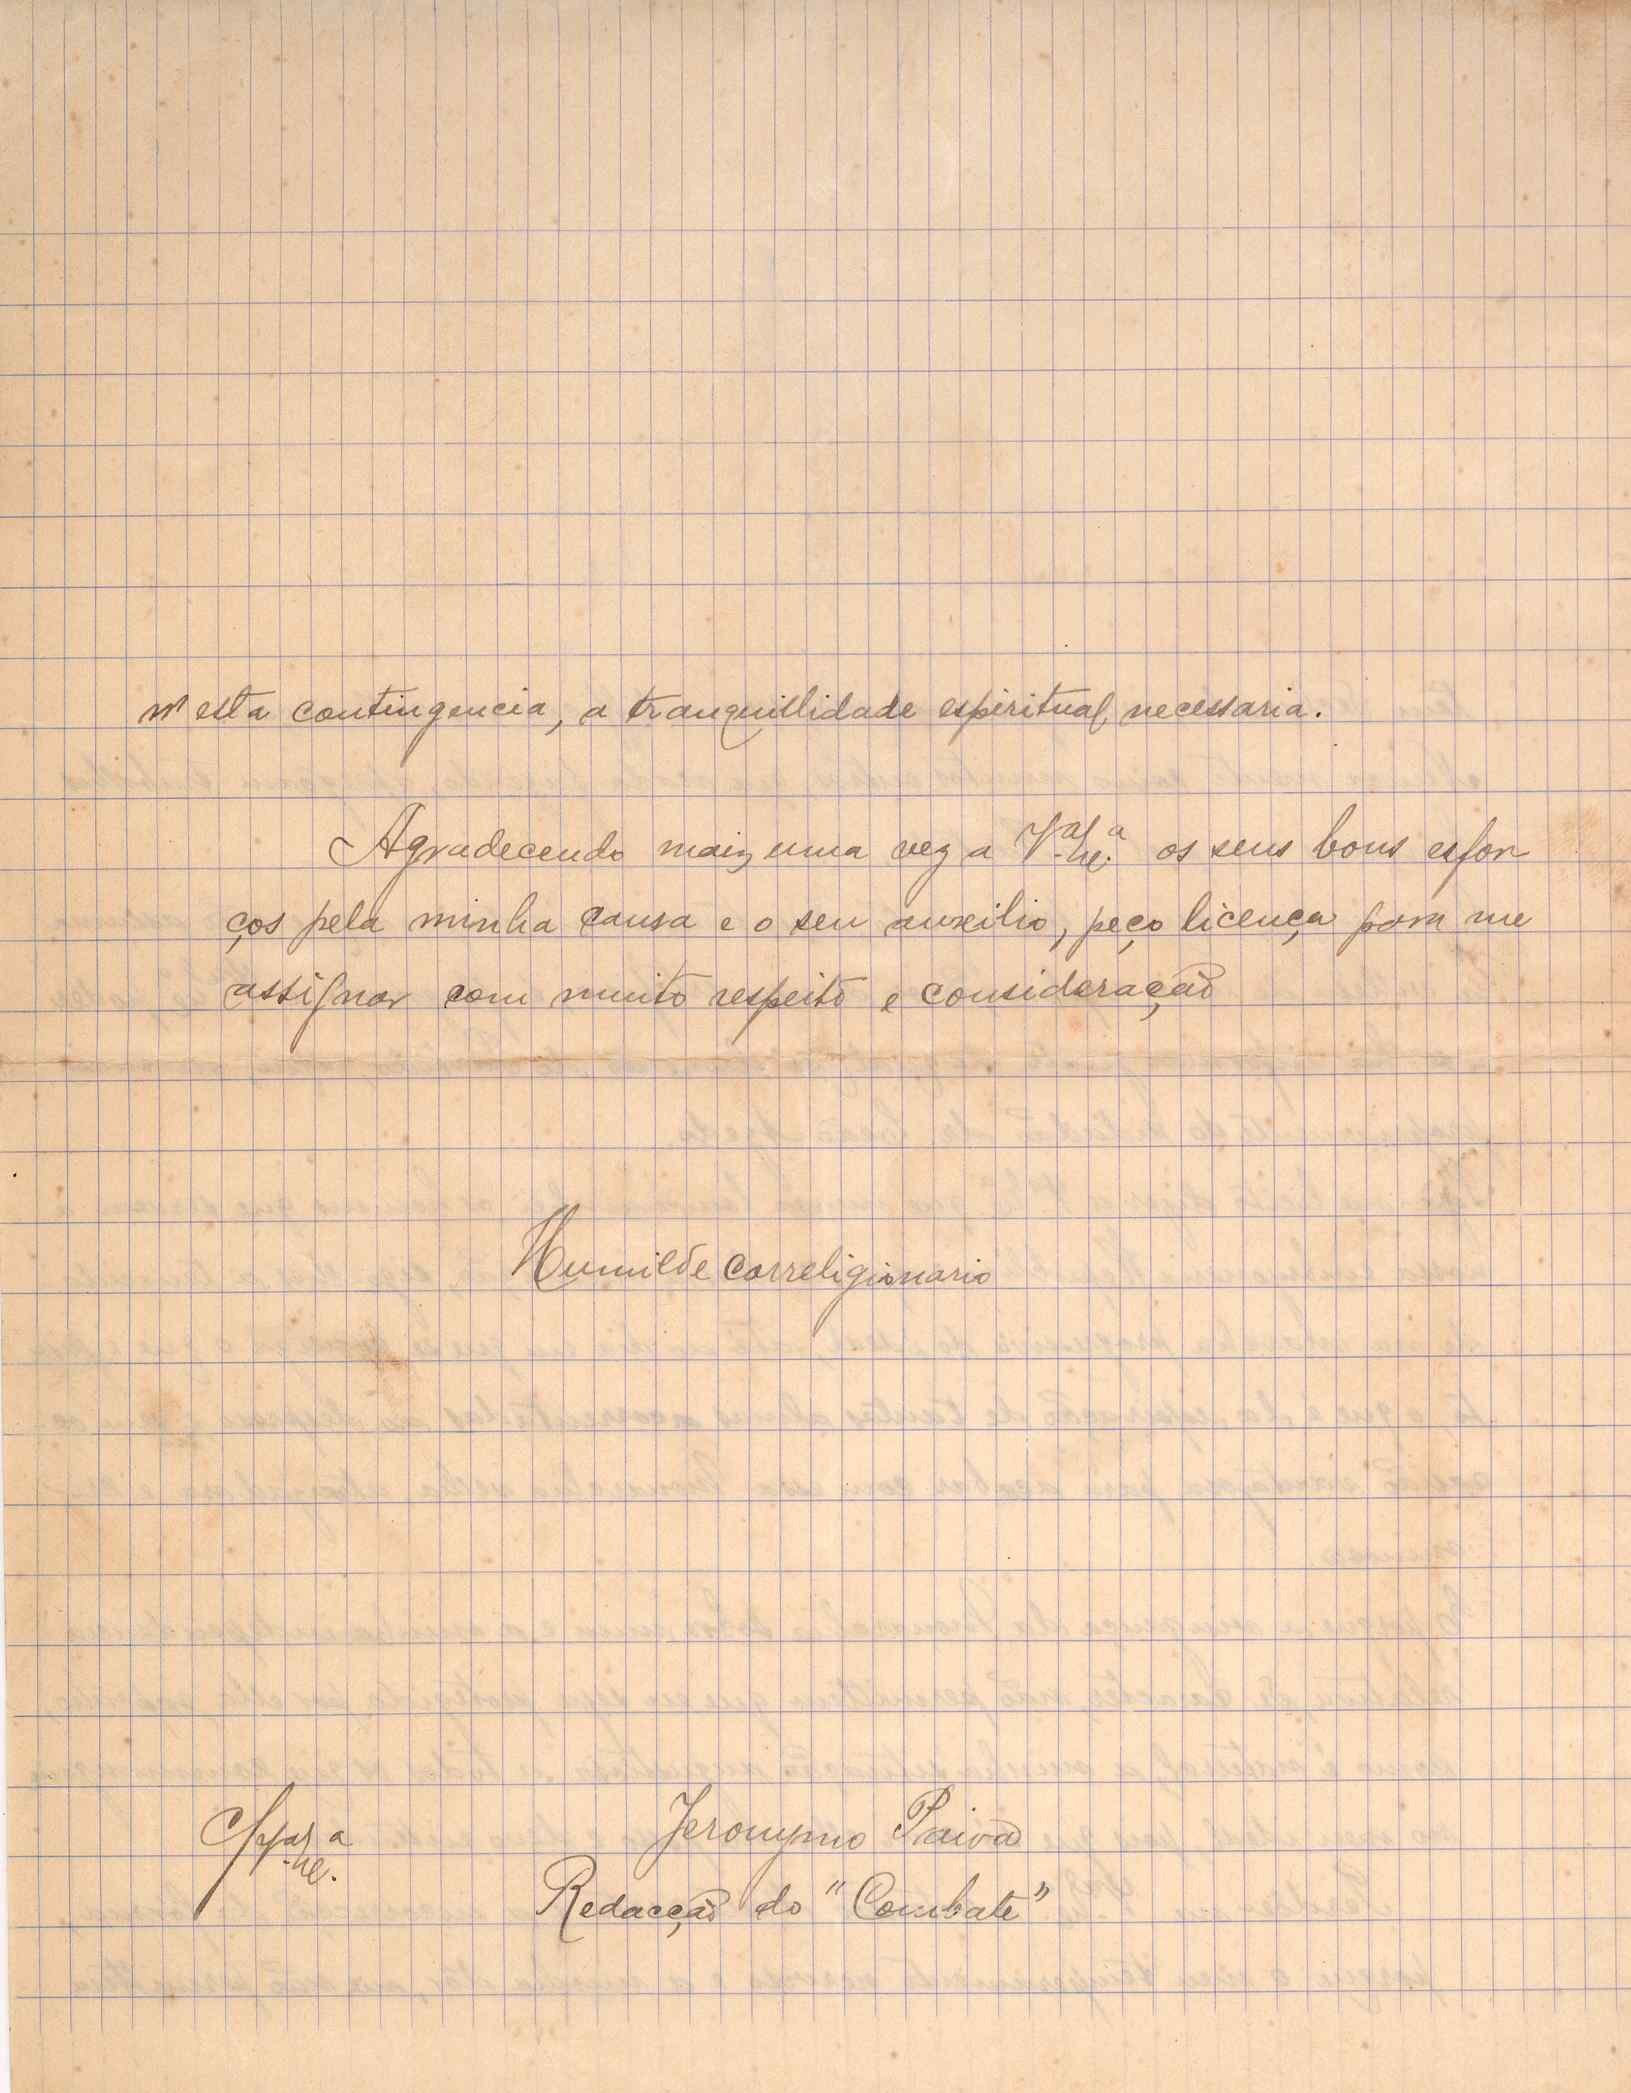 n'esta contingencia, a tranquillidade espiritual necessaria.
Agradecendo mais uma vez a V. os seus bons esfor
ços pela minha causa e o seu auxilio, peço licença para me
assignar com muito respeito e consideração
Humilde correligionario
Jeronymo Paiva
Redacção do "Combate"